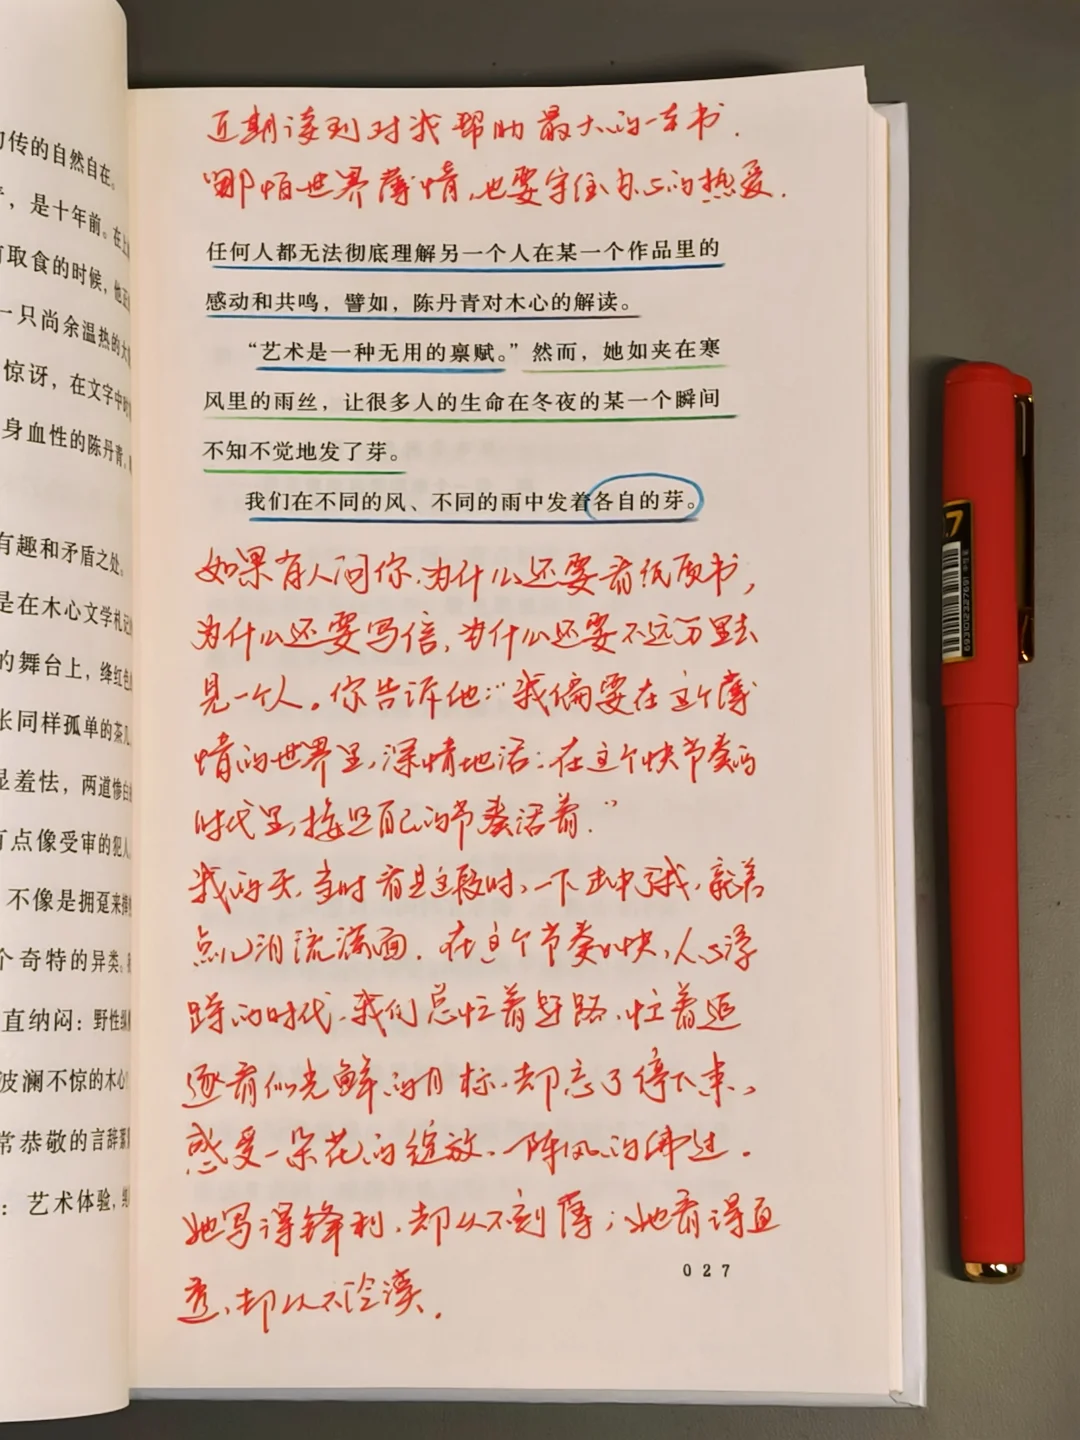 的自然自在。
，是十年前。在上
取食的时候，他正
一只尚余温热的大
惊讶，在文字中时
身血性的陈丹青，
有趣和矛盾之处。
是在木心文学札记
的舞台上，绛红色
长同样孤单的茶几
显羞怯，两道惨白
有点像受审的犯人
不像是拥趸来捧
个奇特的异类。
直纳闷：野性纵
波澜不惊的木心
常恭敬的言辞
：艺术体验，
近期读到对我帮助最大的一本书.
哪怕世界薄情,也要守住自己的热爱.
任何人都无法彻底理解另一个人在某一个作品里的
感动和共鸣，譬如，陈丹青对木心的解读。
“艺术是一种无用的禀赋。”然而，她如夹在寒
风里的雨丝，让很多人的生命在冬夜的某一个瞬间
不知不觉地发了芽。
我们在不同的风、不同的雨中发着各自的芽。
如果有人问你,为什么还要看纸质书，
为什么还要写信，为什么还要不远万里去
见一个人。你告诉他:“我偏要在这个薄
情的世界里,深情地活;在这个快节奏的
时代里,按照自己的节奏活着.”
我的天,当时看见这段时,一下击中了我,就差
点儿泪流满面.在这个节奏加快,人心浮
躁的时代,我们总忙着赶路,忙着追
逐看似光鲜的目标,却忘了停下来,
感受一朵花的绽放、一阵风的拂过.
她写得锋利,却从不刻薄;她看得直
透,却从不冷漠.
027
6930123327691